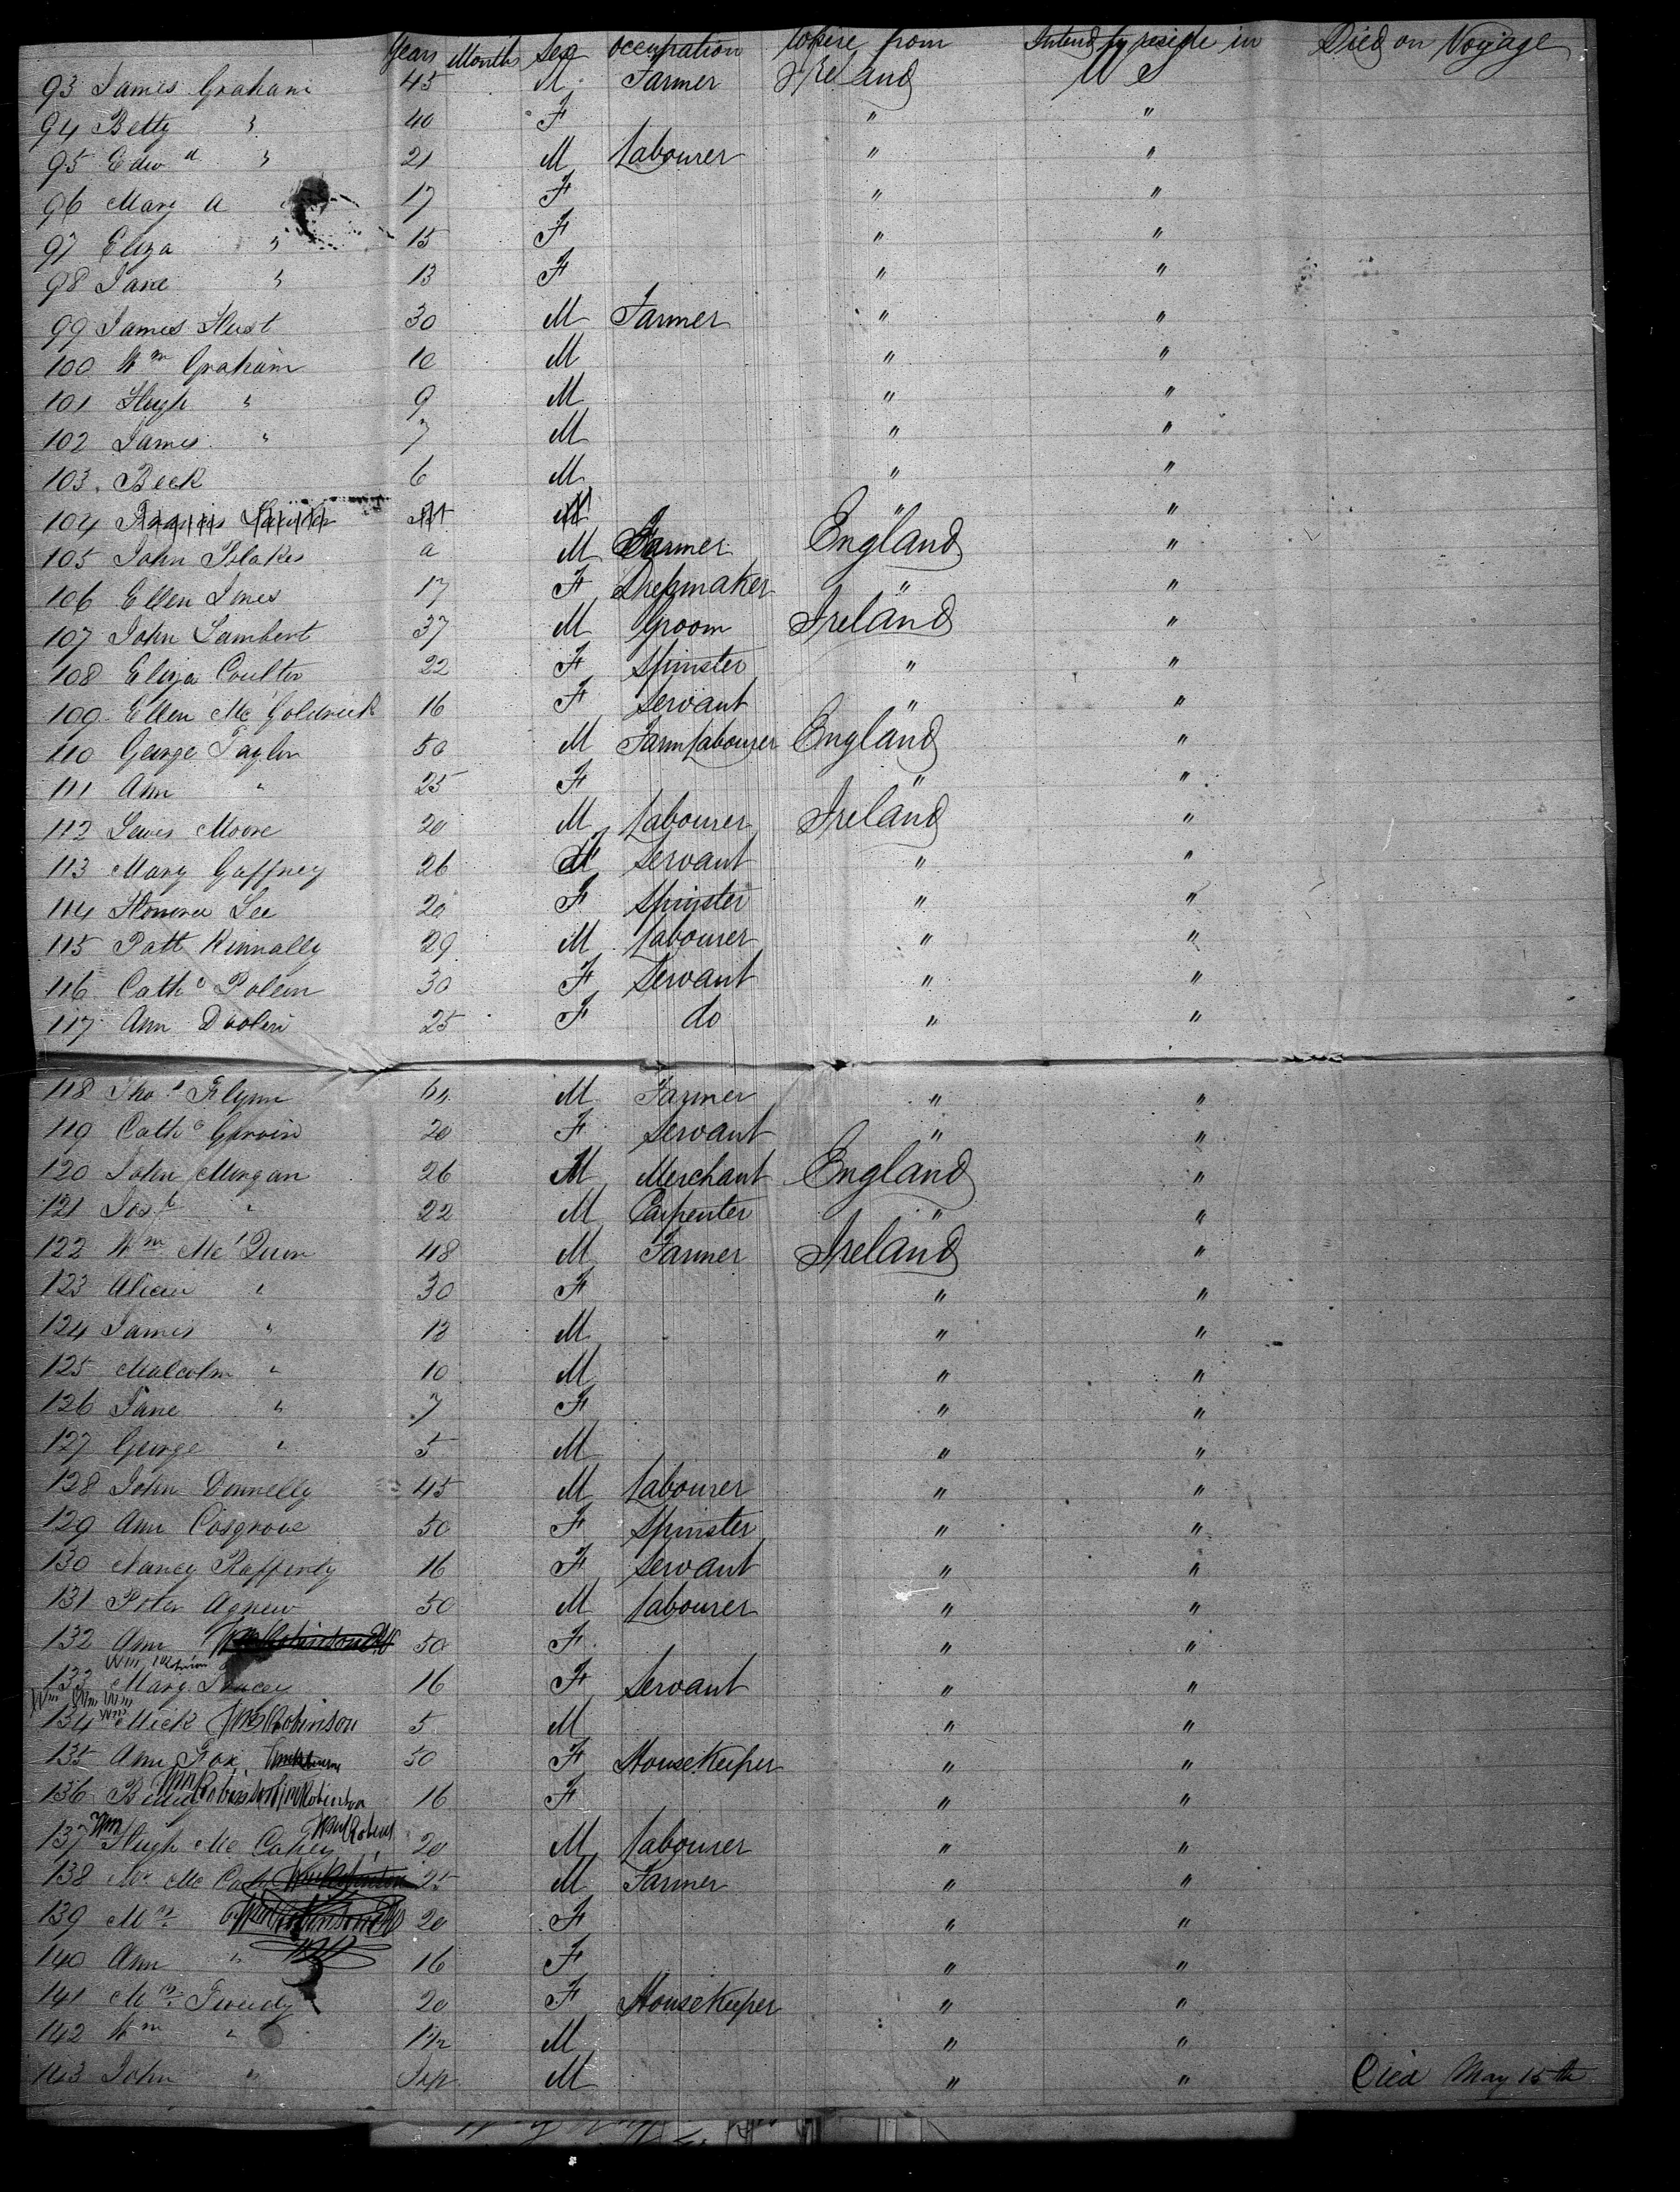 Years Months Sex occupation Where from Intend to reside in Died on Voyage
93 James Graham 45 M Farmer Ireland U S
94 Betty " 40 F " "
95 Edwd " 21 M Labourer " "
96 Mary A 17 F " "
97 Eliza " 15 F " "
98 Jane " 13 F " "
99 James Hust 30 M Farmer " "
100 Wm Graham 10 M " "
101 Hugh " 9 M " "
102 James " 7 M " "
103 Beck 6 M " "
104 M " "
105 John Blakes M Farmer England "
106 Ellen Jones 17 F Dressmaker " "
107 John Lambert 37 M Groom Ireland "
108 Eliza Coulter 22 F Spinster " "
109 Ellen McGoldrick 16 F Servant " "
110 George Taylor 50 M Farm Labourer England "
111 Ann " 25 F " "
112 Lewis Moore 20 M Labourer Ireland "
113 Mary Gaffney 26 Servant " "
114 Honora Lee 20 F Spinster " "
115 Patt Kinnally 29 M Labourer " "
116 Cathe Polein 30 F Servant " "
117 Ann Doolin 25 F do " "
118 Thos Flynn M Farmer " "
119 Cathe Garvin 20 F Servant " "
120 John Morgan 26 M Merchant England "
121 Josh " 22 M Carpenter " "
122 Wm McQuin 48 M Farmer Ireland "
123 Alicia " 30 F " "
124 James " 13 M " "
125 Malcolm " 10 M " "
126 Jane " 7 F " "
127 George " 5 M " "
128 John Donnelly 45 M Labourer " "
129 Ann Cosgrove 50 F Spinster " "
130 Nancy Rafferty 16 F Servant " "
131 Peter Agnew 50 M Labourer " "
132 Ann Wm Robinson 50 F " "
Wm Robinson
133 Mary Tracey 16 F Servant " "
Wm Wm Wm
134 Mick Wm Robinson 5 M " "
135 Ann Fox 50 F Housekeeper " "
Wm Robinson Wm Robinson
136 16 F " "
Wm
137 Hugh Mc Cahey 20 M Labourer " "
138 Mr Mc 25 M Farmer " "
139 Mrs Wm Robinson 20 F " "
140 Ann " 16 F " "
141 Mrs Tweedy 20 F Housekeeper " "
142 Wm " M " "
143 John " M " " Died May 15th